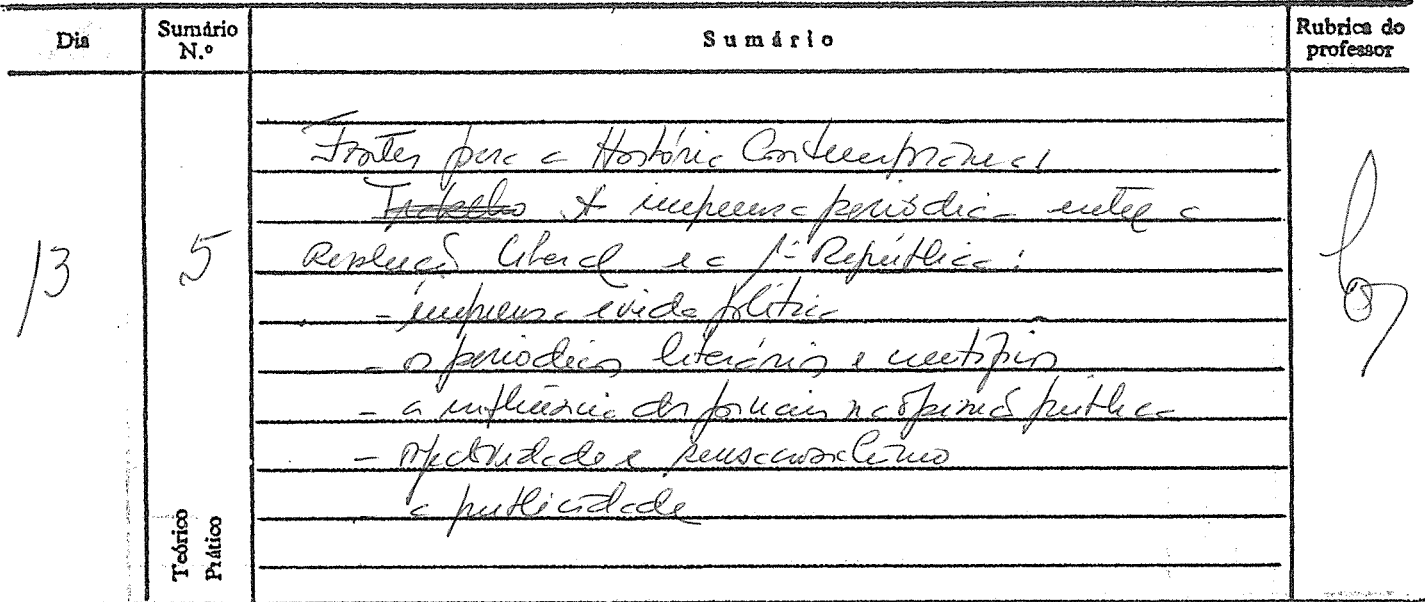 Dia
Sumário N.º
Sumário
Rubrica do professor
Fontes para a História Contemporânea
A imprensa periódica entre a
Revolução liberal e a 1ª República:
13
5
- imprensa e vida política
- os periódicos literários e científicos
- a influência dos jornais na opinião pública
- objectividade e sensacionalismo
- a publicidade
Teórico
Prático